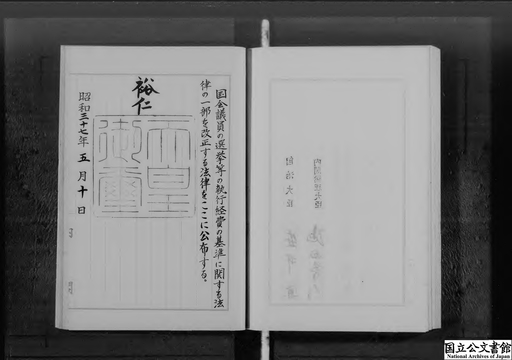 国会議員の選挙等の執行経費の基準に関する法
律の一部を改正する法律をここに公布する。
裕仁
天皇
御璽
昭和三十七年五月十日
国立公文書館
National Archives of Japan